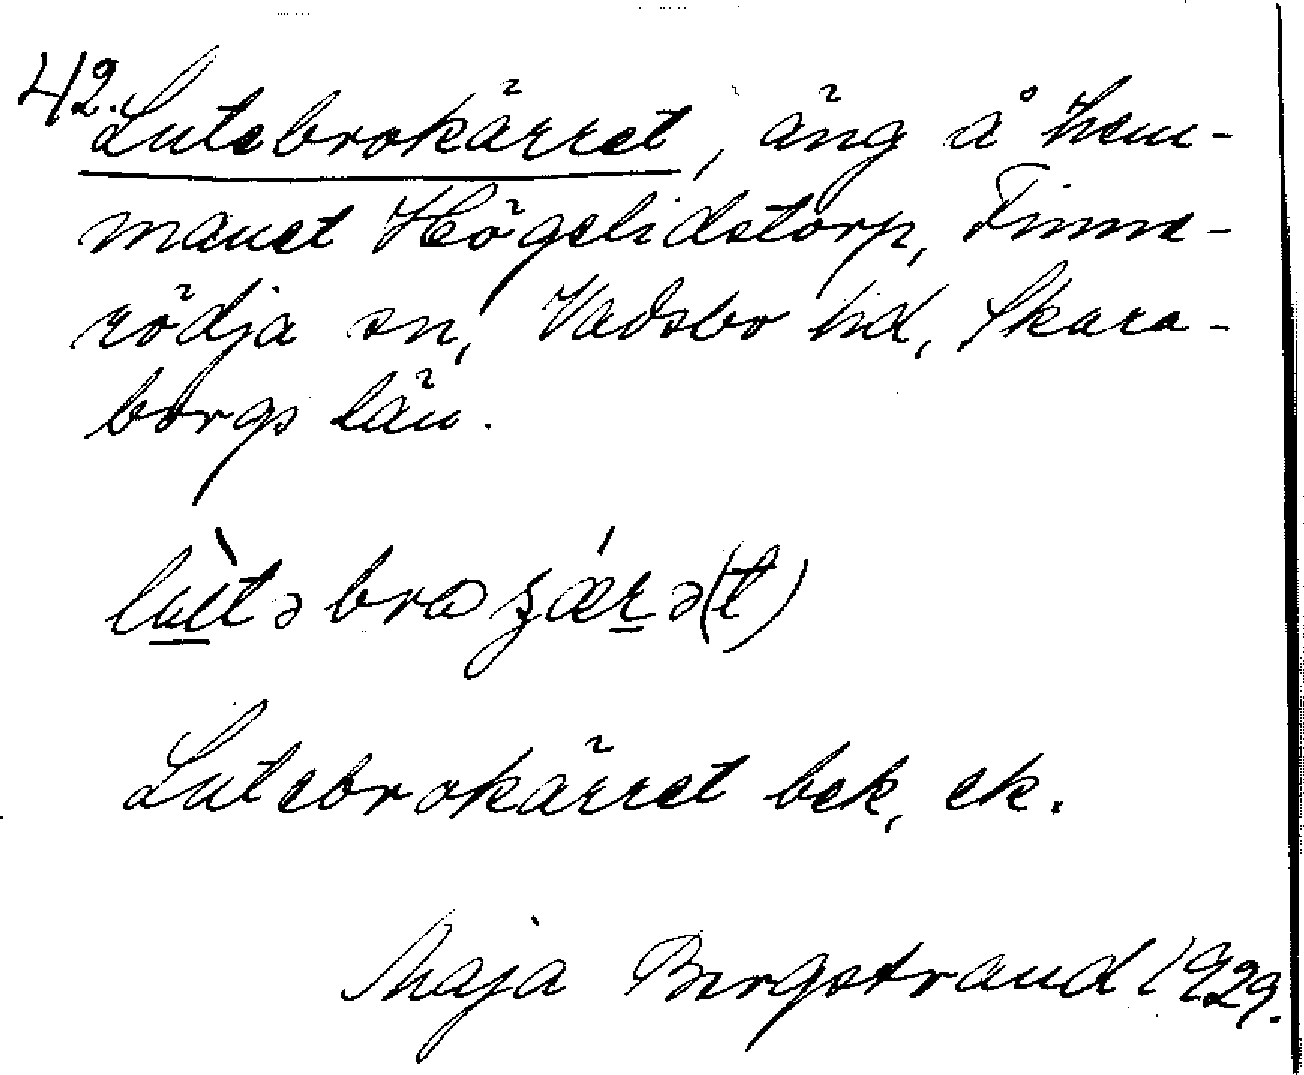 42. Lutebrokärret, äng å hem-
manet Högelidstorp, Finne-
rödja sn, Vadsbo hd, Skara-
borgs län.
Lutebrokärret bek, ek.
Maja Bergstrand 1929.